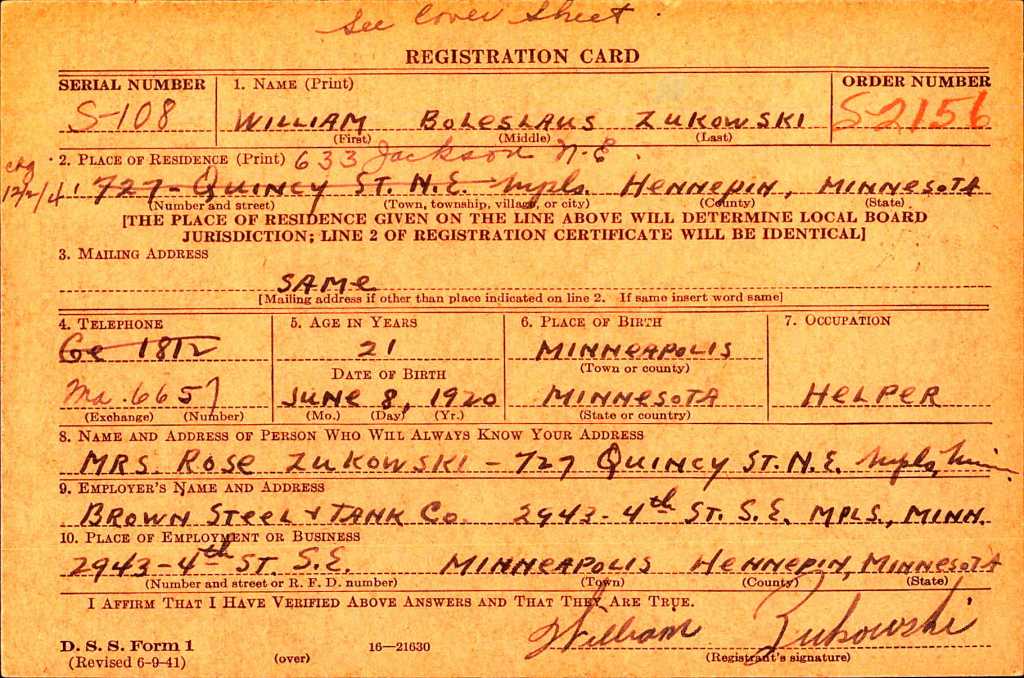 See Cover Sheet.
REGISTRATION CARD
SERIAL NUMBER 1. NAME (Print) ORDER NUMBER
S-108 WILLIAM BOLESLAUS ZUKOWSKI S-2156
(First) (Middle) (Last)
2. PLACE OF RESIDENCE (Print) 633 Jackson N-E.
chg 12/2/41 727- QUINCY ST. N.E. Mpls. HENNEPIN, MINNESOTA
(Number and street) (Town, township, village, or city) (County) (State)
[THE PLACE OF RESIDENCE GIVEN ON THE LINE ABOVE WILL DETERMINE LOCAL BOARD
JURISDICTION; LINE 2 OF REGISTRATION CERTIFICATE WILL BE IDENTICAL]
3. MAILING ADDRESS
SAME
[Mailing address if other than place indicated on line 2. If same insert word same]
4. TELEPHONE 5. AGE IN YEARS 6. PLACE OF BIRTH 7. OCCUPATION
Ge 1812 21 MINNEAPOLIS
(Town or county)
DATE OF BIRTH
Ma. 6657 JUNE 8, 1920 MINNESOTA HELPER
(Exchange) (Number) (Mo.) (Day) (Yr.) (State or country)
8. NAME AND ADDRESS OF PERSON WHO WILL ALWAYS KNOW YOUR ADDRESS
MRS. ROSE ZUKOWSKI - 727 QUINCY ST. N.E. Mpls, Minn
9. EMPLOYER'S NAME AND ADDRESS
BROWN STEEL & TANK CO. 2943- 4th ST. S.E. MPLS., MINN.
10. PLACE OF EMPLOYMENT OR BUSINESS
2943-4th ST. S.E. MINNEAPOLIS HENNEPIN, MINNESOTA
(Number and street or R. F. D. number) (Town) (County) (State)
I AFFIRM THAT I HAVE VERIFIED ABOVE ANSWERS AND THAT THEY ARE TRUE.
William Zukowski
D. S. S. Form 1
(Revised 6-9-41) (over) 16—21630 (Registrant's signature)